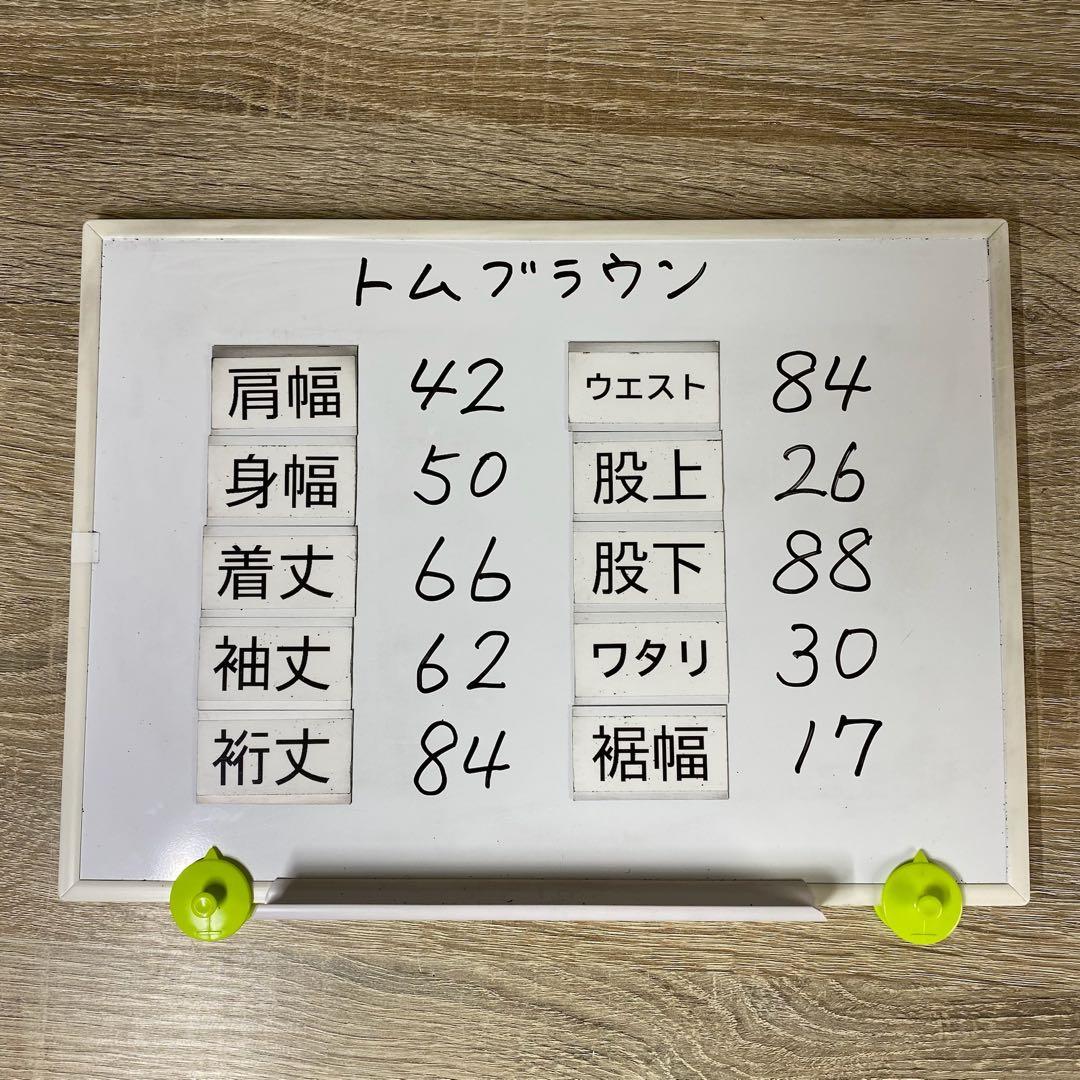 トムブラウン
肩幅 42 ウエスト 84
身幅 50 股上 26
着丈 66 股下 88
袖丈 62 ワタリ 30
裄丈 84 裾幅 17